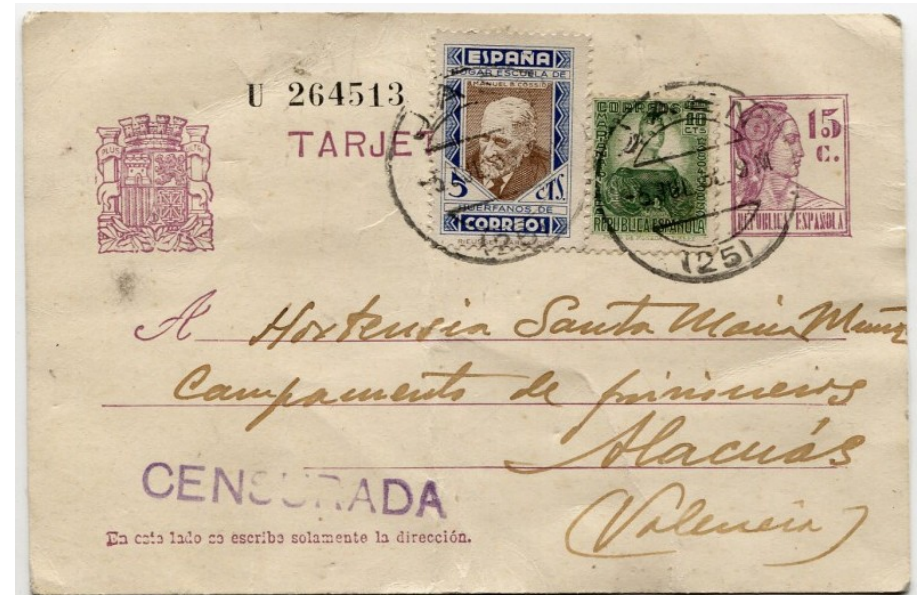 U 264513
TARJE
ESPAÑA
HOGAR ESCUELA DE
MANUEL B. COSSIO
5 CTS.
HUERFANOS DE
CORREOS
CORREOS
10
CTS
REPUBLICA ESPAÑOLA
15
C.
REPUBLICA ESPAÑOLA
(25)
A Hortensia Santa Maria Muñoz
Campamento de prisioneros
Alacuás
(Valencia)
CENSURADA
En este lado se escribe solamente la dirección.